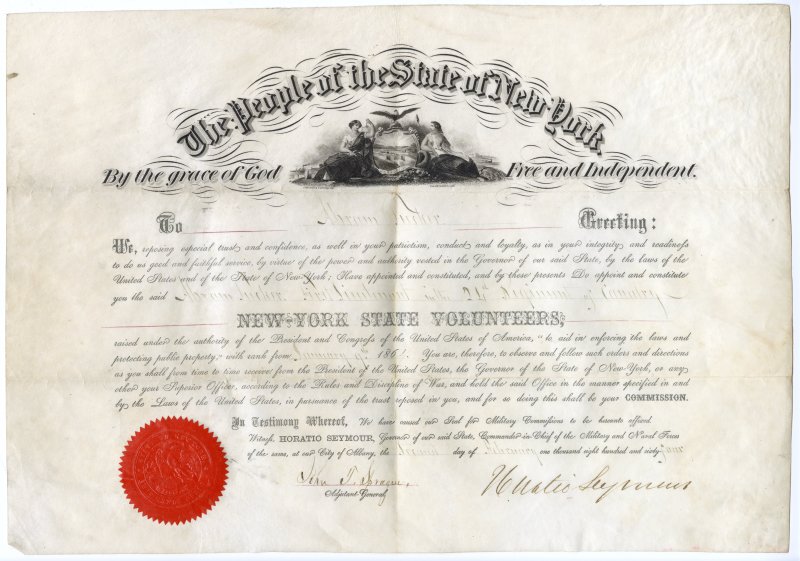 The People of the State of New York
By the grace of God Free and Independent.
To Abram Greeting:
We, reposing especial trust and confidence, as well in your patriotism, conduct and loyalty, as in your integrity and readiness
to do us good and faithful service, by virtue of the power and authority vested in the Governor of our said State, by the laws of the
United States and of the State of New-York; Have appointed and constituted, and by these presents Do appoint and constitute
you the said Abram First Lieutenant in the Regiment of Cavalry
NEW-YORK STATE VOLUNTEERS,
raised under the authority of the President and Congress of the United States of America, "to aid in enforcing the laws and
protecting public property," with rank from 1864. You are, therefore, to observe and follow such orders and directions
as you shall from time to time receive from the President of the United States, the Governor of the State of New-York, or any
other your Superior Officer, according to the Rules and Discipline of War, and hold the said Office in the manner specified in and
by the Laws of the United States, in pursuance of the trust reposed in you, and for so doing this shall be your COMMISSION.
In Testimony Whereof, We have caused our Seal for Military Commissions to be hereunto affixed.
Witness, HORATIO SEYMOUR, Governor of our said State, Commander-in-Chief of the Military and Naval Forces
of the same, at our City of Albany, the Second day of February one thousand eight hundred and sixty-four
John T. Sprague, Horatio Seymour
Adjutant-General.